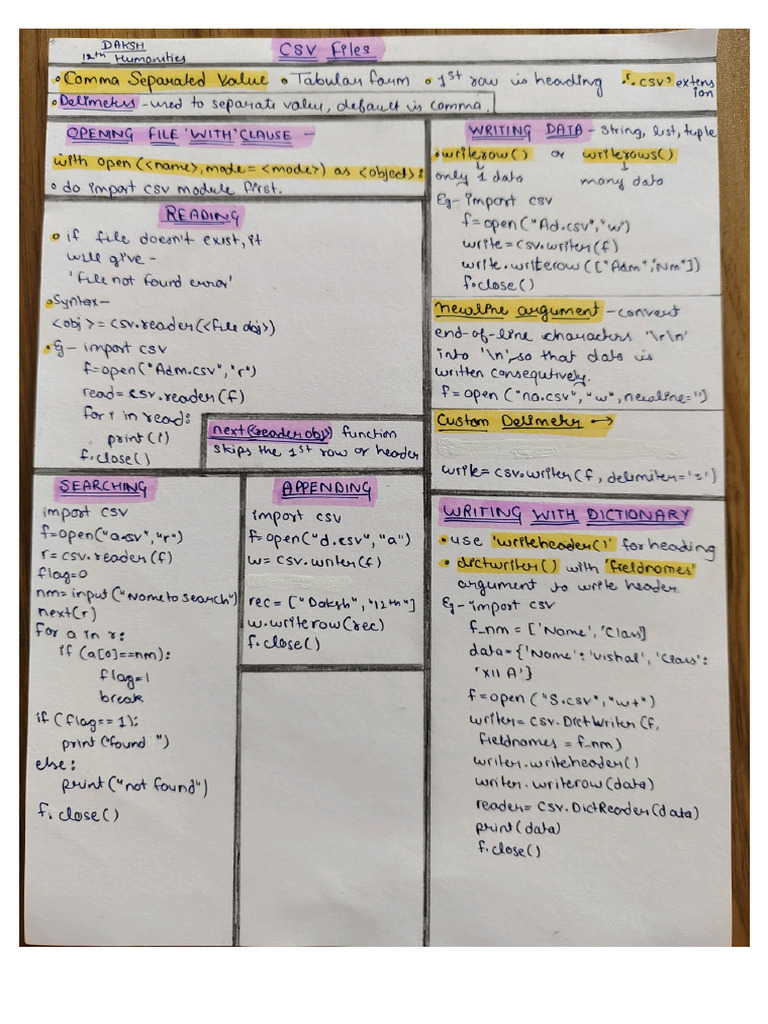 DAKSH
12th Humanities
CSV Files
• Comma Separated Value • Tabular form • 1st row is heading • '.csv' extension
• Delimeters - used to separate value, default is comma.
OPENING FILE 'WITH' CLAUSE -
with open (<name>, mode = <mode>) as <object>:
• do import csv module first.
READING
• if file doesn't exist, it
will give -
'File not found error'
• Syntax-
<obj> = csv.reader(<file obj>)
• Eg- import csv
f=open("Adm.csv","r")
read= csv.reader(f)
for i in read:
print(i)
f.close()
next(<reader obj>) function
skips the 1st row or header
WRITING DATA - string, list, tuple
• writerow() or writerows()
↓ ↓
only 1 data many data
Eg- import csv
f=open("Ad.csv","w")
write=csv.writer(f)
write.writerow(["Adm","Nm"])
f.close()
newline argument - convert
end-of-line characters '\r\n'
into '\n', so that data is
written consequtively.
f=open("na.csv","w",newline='')
Custom Delimeter →
write=csv.writer(f, delimiter=':')
SEARCHING
import csv
f=open("a.csv","r")
r=csv.reader(f)
flag=0
nm=input("Name to search")
next(r)
for a in r:
if (a[0]==nm):
flag=1
break
if (flag==1):
print("found ")
else:
print("not found")
f.close()
APPENDING
import csv
f=open("d.csv","a")
w=csv.writer(f)
rec=["Daksh","12th"]
w.writerow(rec)
f.close()
WRITING WITH DICTIONARY
• use 'writeheader()' for heading
• dictwriter() with 'fieldnames'
argument to write header.
Eg- import csv
f_nm = ['Name','Class]
data={'Name':'Vishal','Class':
'XII A'}
f=open("S.csv","w+")
writer=csv.DictWriter(f,
fieldnames = f_nm)
writer.writeheader()
writer.writerow(data)
reader=csv.DictReader(data)
print(data)
f.close()